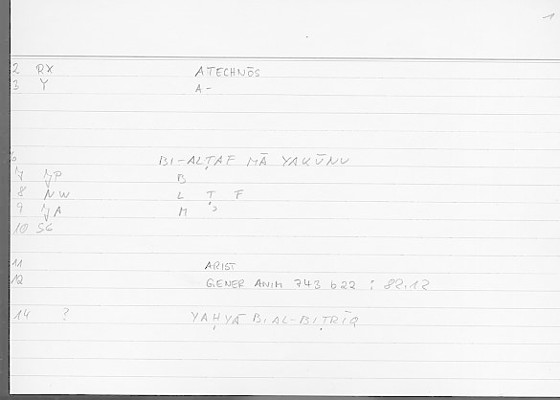 1
2 RX ATECHNŌS
3 Y A-
6 BI-ALṬAF MĀ YAKŪNU
7 YP B
8 NW L Ṭ F
9 YA M
10 SG
11 ARIST
12 GENER ANIM 743 b22 : 82.12
14 ? YAḤYĀ B. AL-BIṬRĪQ